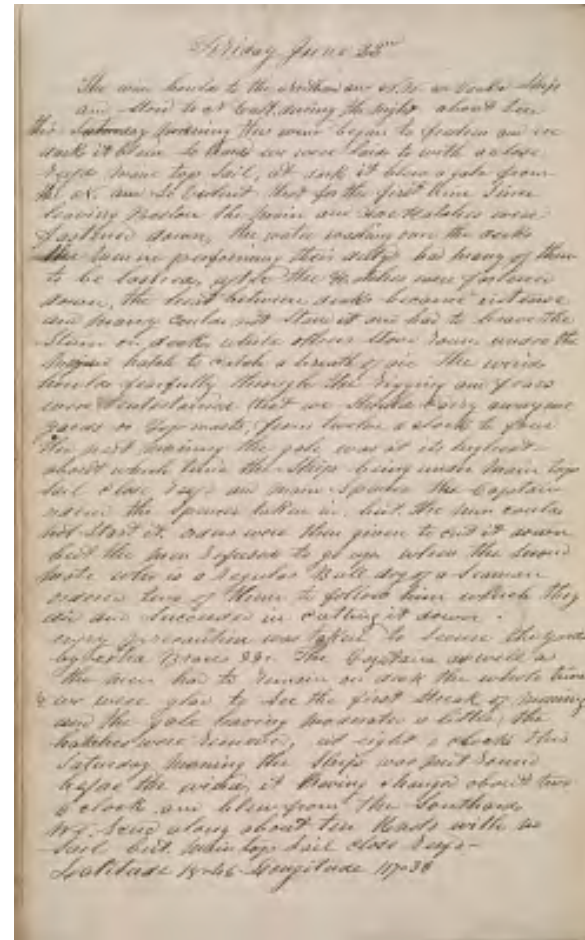 Friday June 22nd
The wind hauls to the
and stood to at East during the night about ten
this Saturday morning the wind began to freshen and we
dark it blew so hard we were laid to with a close
reefed main top sail, at dark it blew a gale from
the N. and so violent that for the first time since
leaving Boston the main and fore Hatches were
fastened down, the water washing over the decks
the men in performing their duty had many of them
to be lashed, after the Hatches were fastened
down, the heat between decks became intense
and many could not stand it and had to brave the
storm on deck, while others stood round under the
hatch to catch a breath of air The wind
howled fearfully through the rigging and fears
were entertained that we should carry away our
yards or top masts, from twelve o clock to four
the next morning the gale was at its highest
about which time the ship being under main top
sail close reefd and main Spencer the Captain
ordered the Spencer taken in but the men could
not start it. orders were then given to cut it down
but the men refused to go up when the second
mate who is a regular Bull dog of a seaman
ordered two of them to follow him which they
did and succeeded in cutting it down.
every precaution was taken to secure the yards
by extra Braces &c. The Captain as well as
the men had to remain on deck the whole time
& we were glad to see the first streak of morning
and the gale having moderated a little, the
hatches were removed, at eight o clock this
Saturday morning the ship was put round
before the wind, it having changed about two
o clock and blew from the Southard
along about ten Knots with no
sail but main top sail close reefd
Latitude 18-46 Longitude 117-38